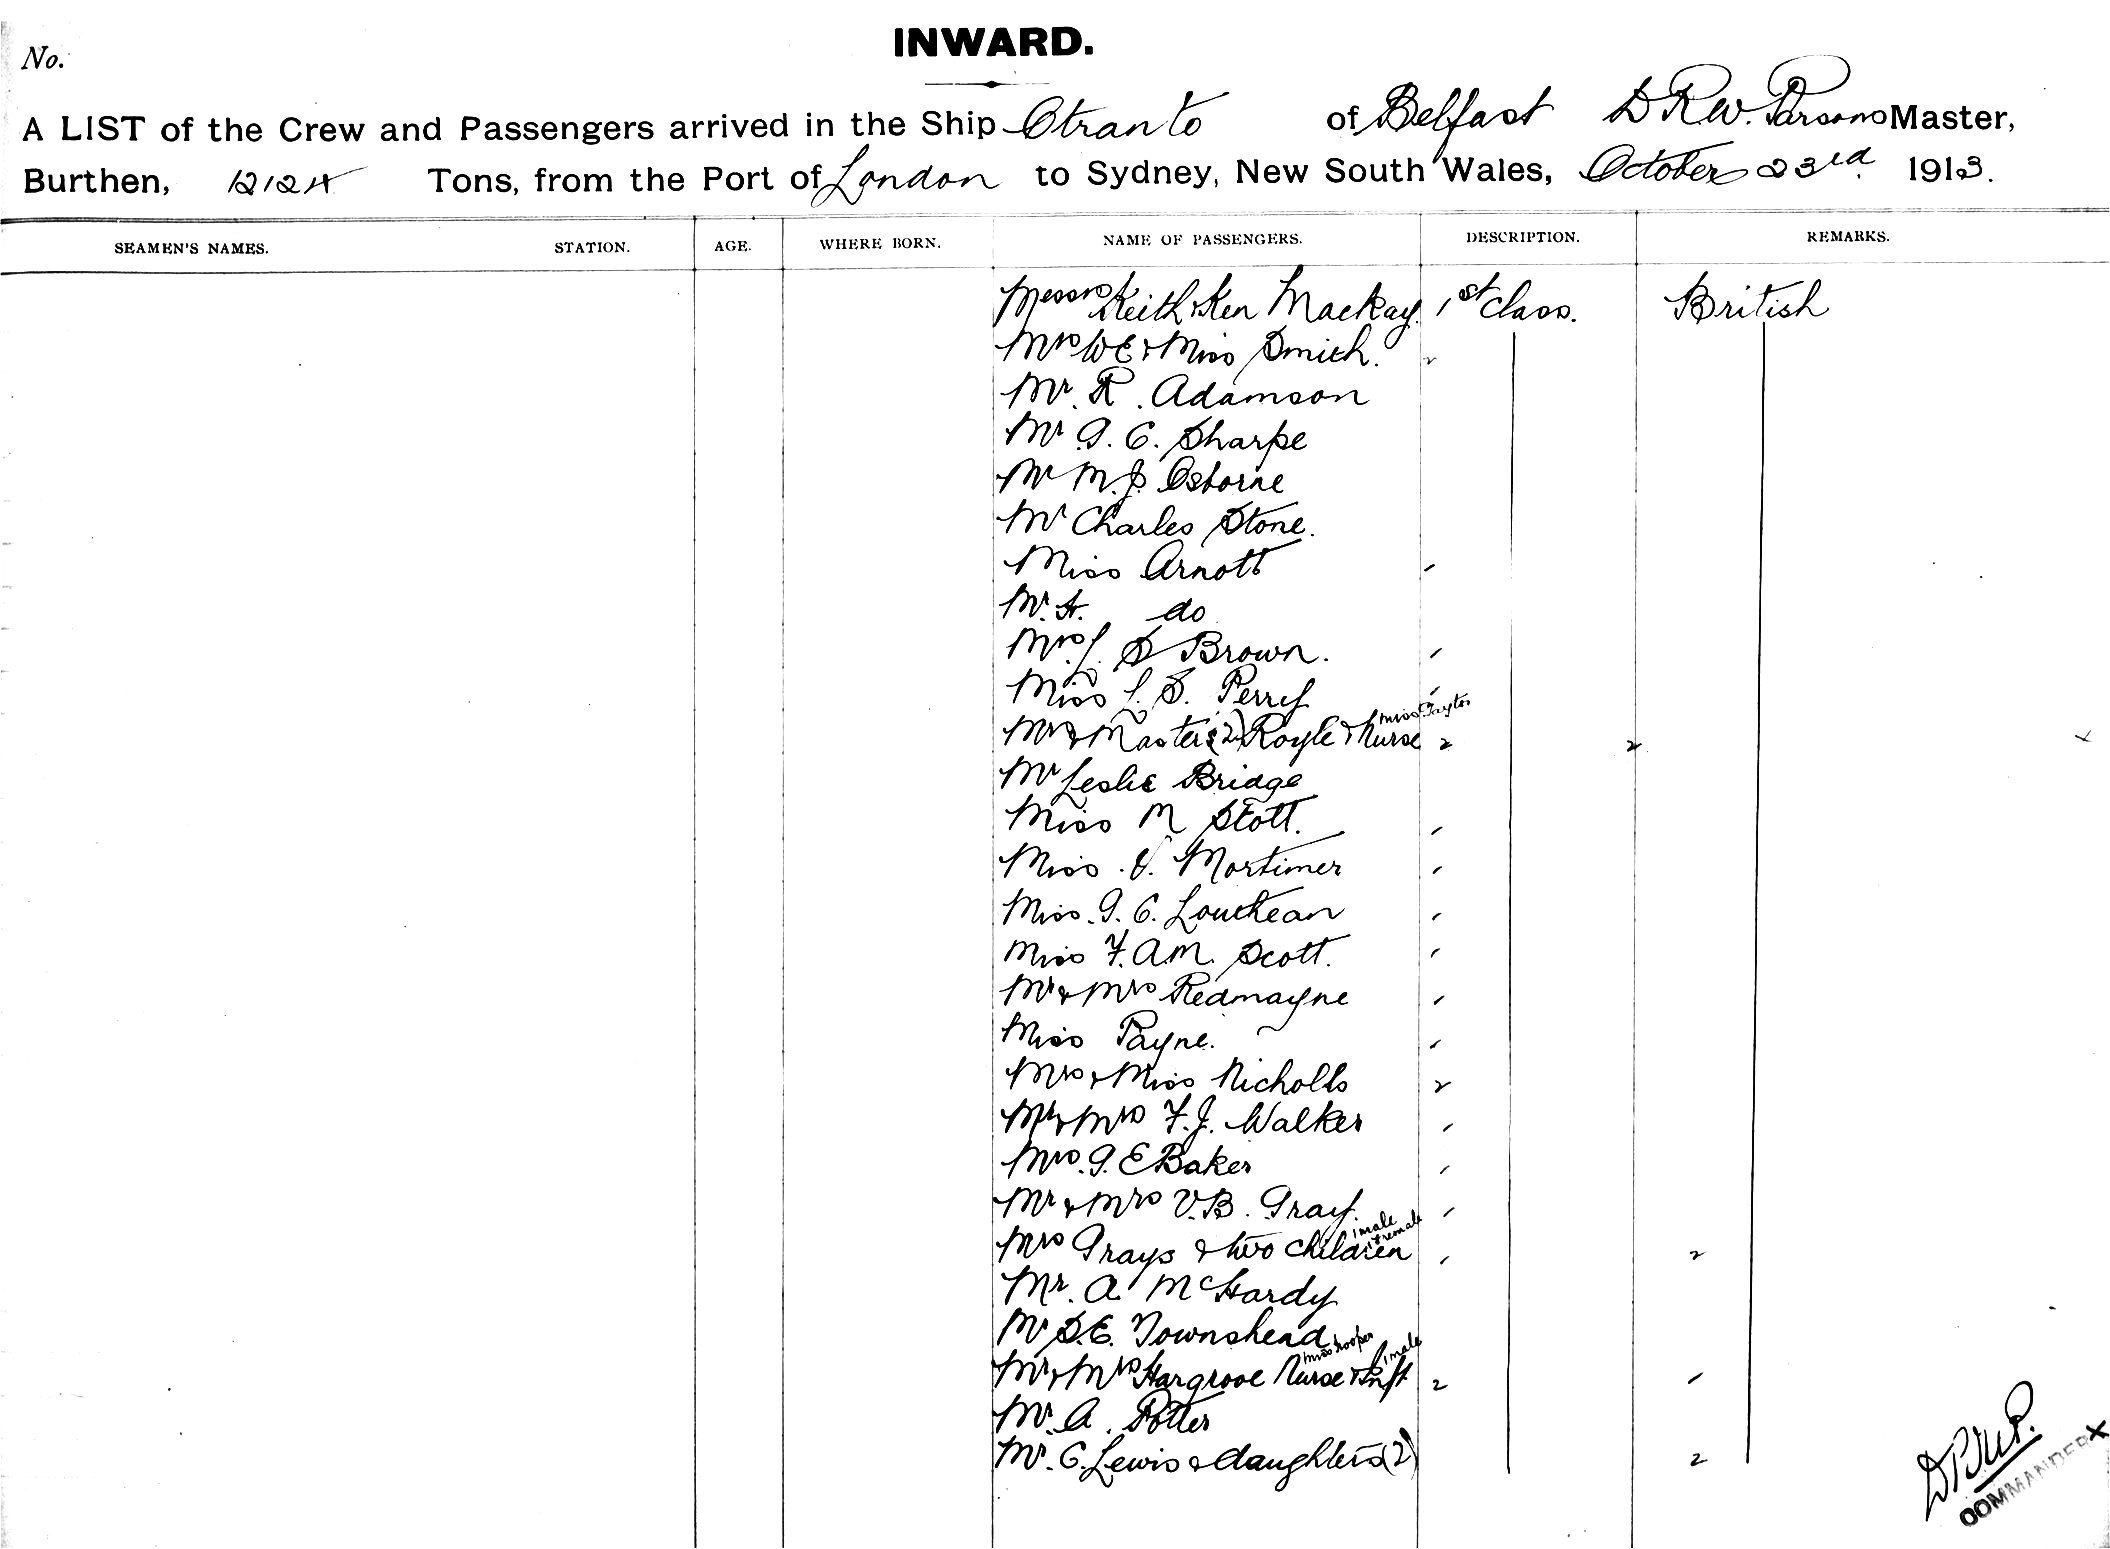 INWARD.
No.
A LIST of the Crew and Passengers arrived in the Ship Otranto of Belfast D R W. Parsons Master,
Burthen, 12124 Tons, from the Port of London to Sydney, New South Wales, October 23rd 1913.
SEAMEN'S NAMES. STATION. AGE. WHERE BORN. NAME OF PASSENGERS. DESCRIPTION. REMARKS.
Messrs Keith & Ken Mackay 1st Class. British
Mrs W E & Miss Smith. 2
Mr. R. Adamson
Mr G. C. Sharpe
Mr M. J. Osborne
Mr Charles Stone.
Miss Arnott
Mr. H. do
Mrs. S Brown.
Miss L. S. Perry
Miss Taylor
Mrs & Masters (2) Royle & Nurse 2 2
Mr Leslie Bridge
Miss M Stott.
Miss Mortimer
Miss. G. C.
Miss F. A. M. Scott.
Mr & Mrs Redmayne
Miss Payne.
Mrs & Miss Nicholls 2
Mr & Mrs F. J. Walker
Mrs. G. E Baker
Mr & Mrs V. B. Gray.
1 male
1 female
Mrs Grays & two children 2
Mr. A McHardy
Mr S. E. Townshend
Miss Hooper 1 male
Mr & Mrs Hargrove Nurse & Inft 2
Mr. A. Potter
Mr. C. Lewis & daughters (2) 2
COMMANDER